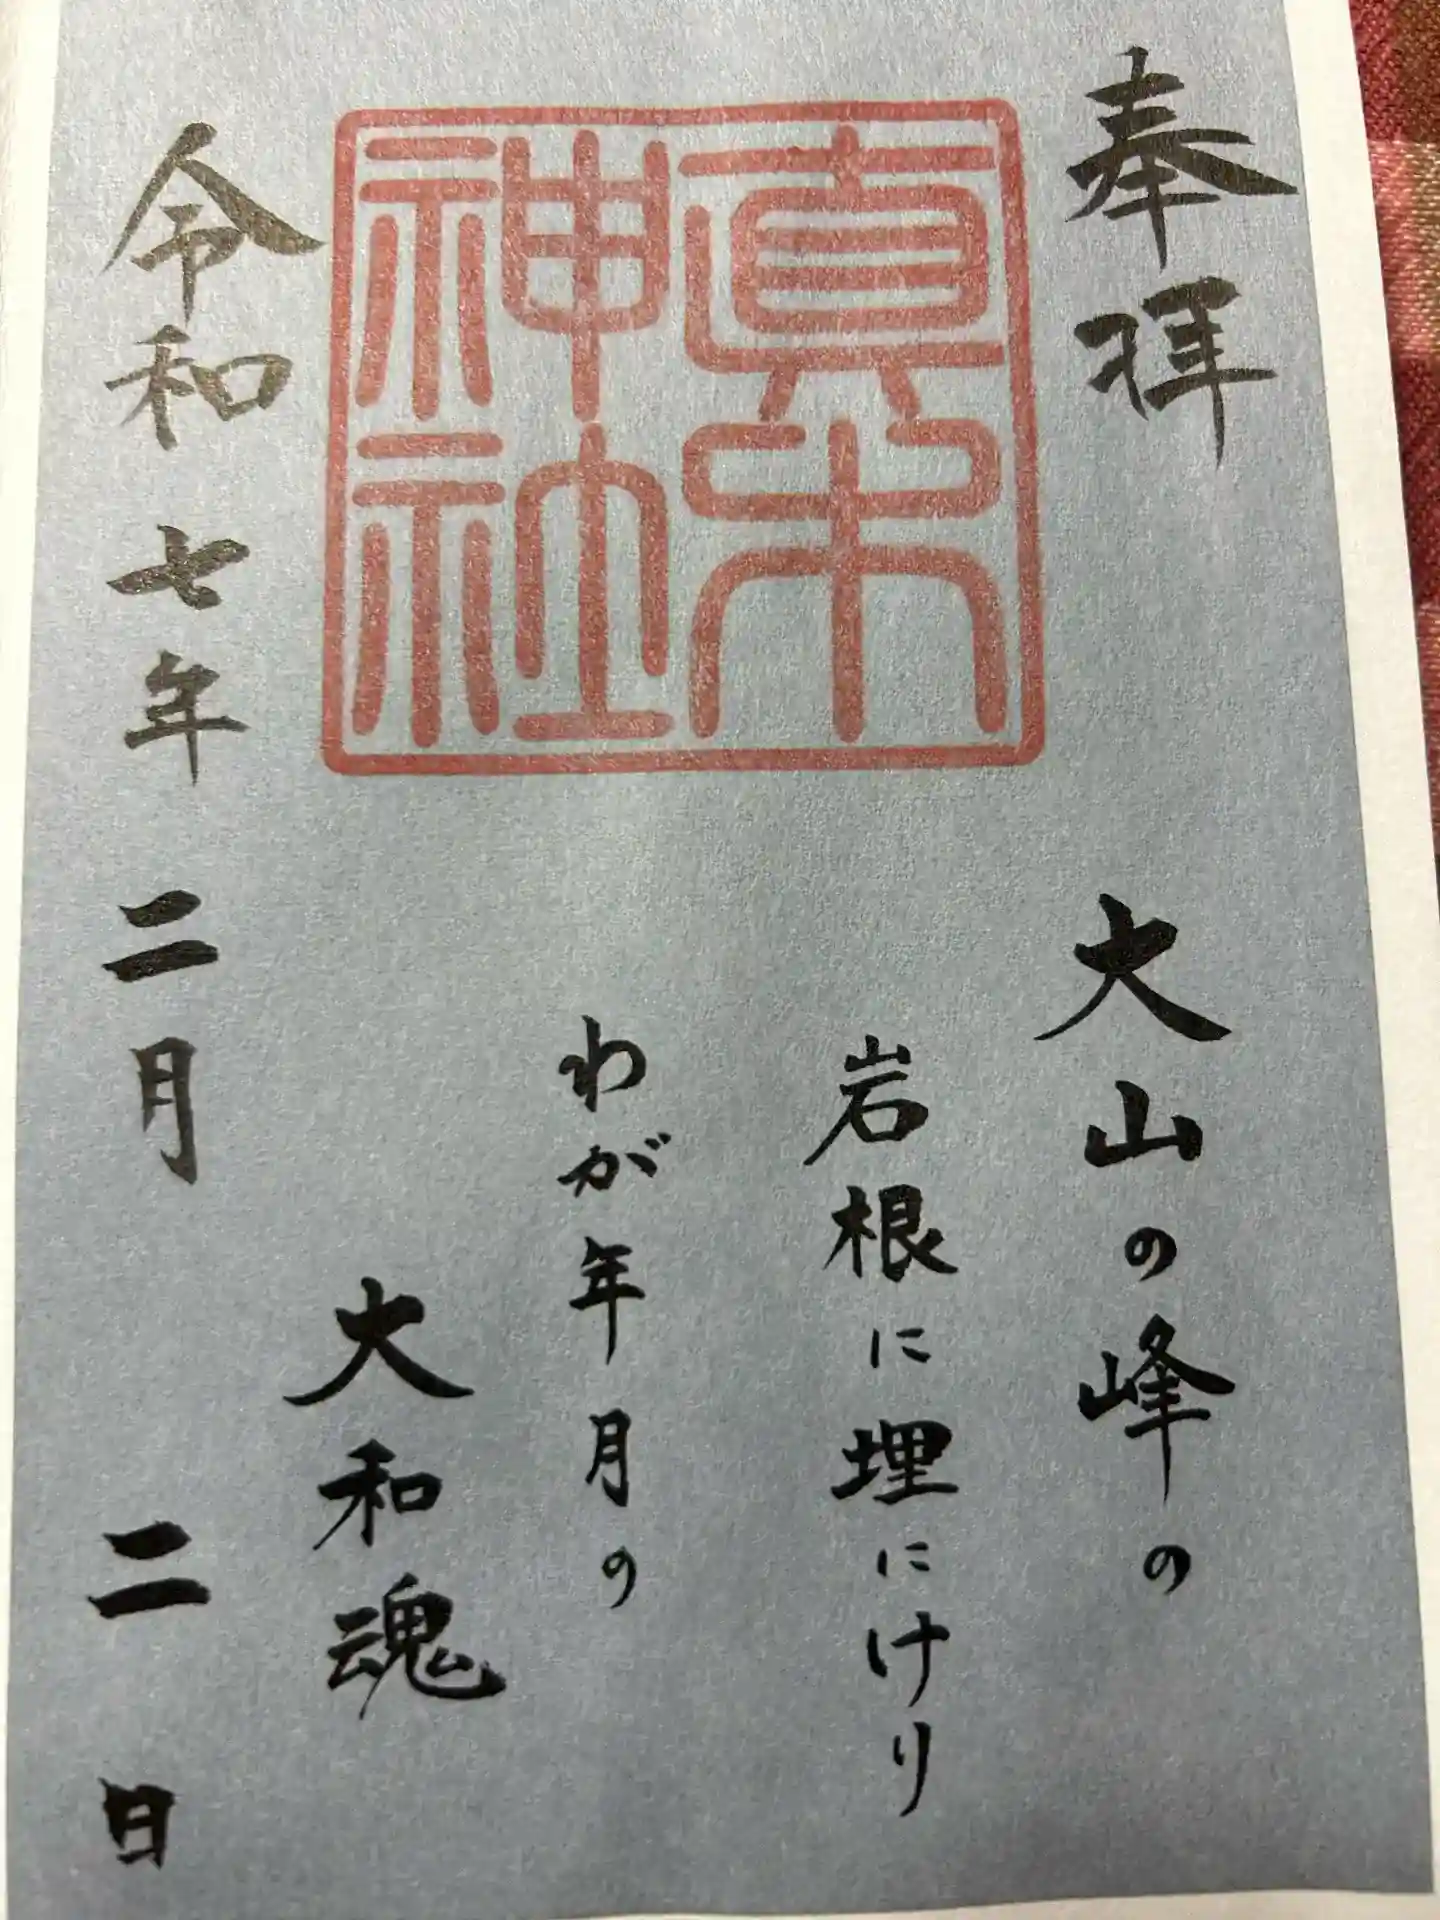 奉拝
真木神社
大山の峰の
岩根に埋にけり
わが年月の
大和魂
令和七年二月二日